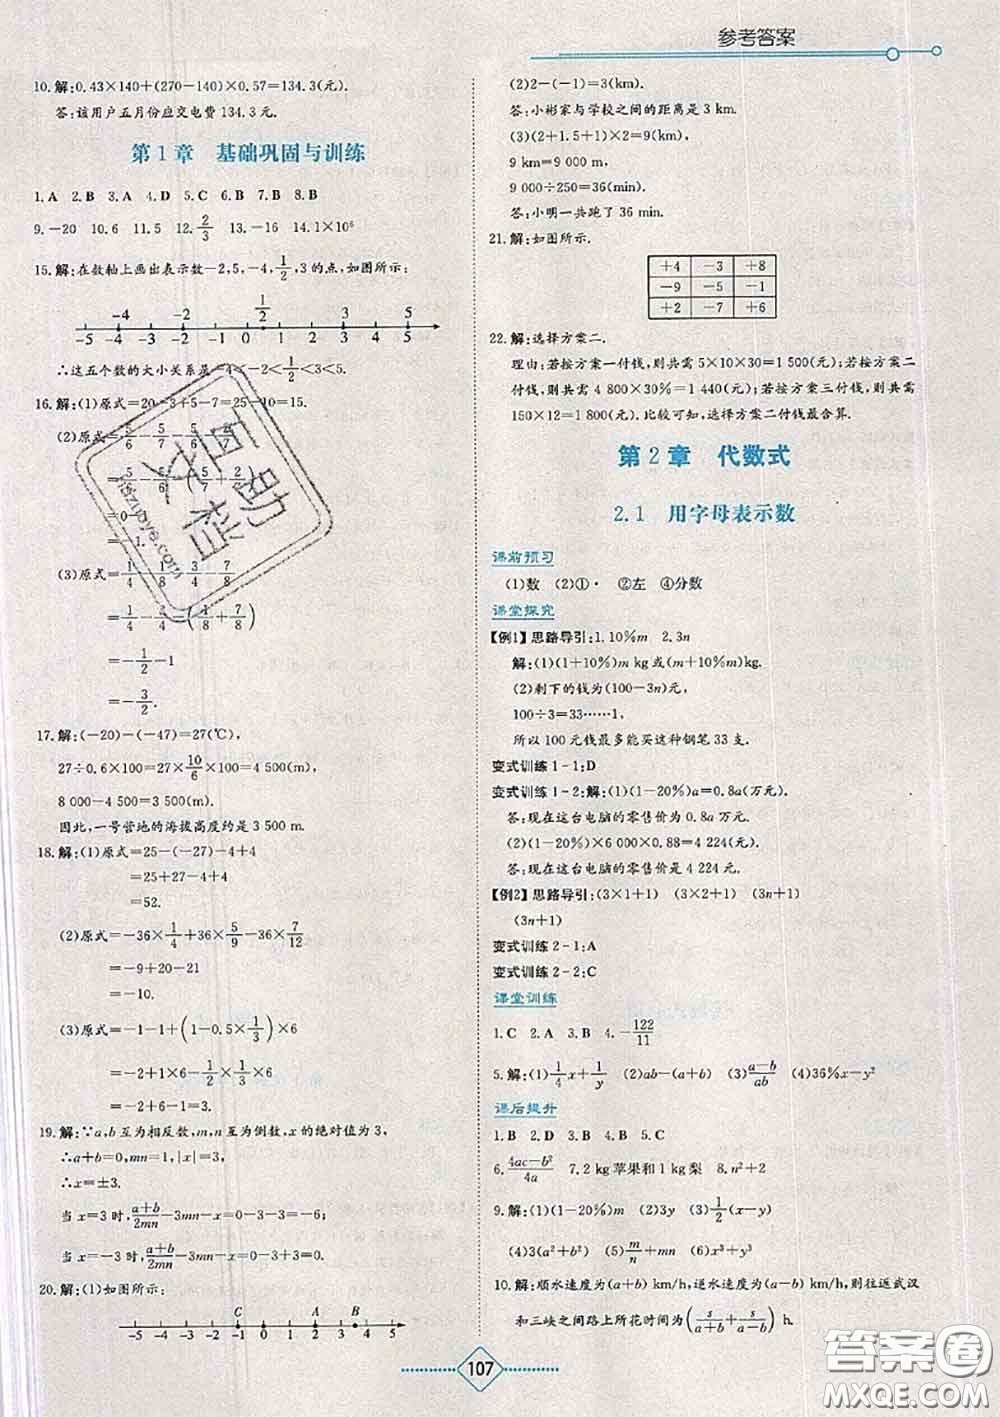 参考答案
10.解:0.43×140+(270-140)×0.57=134.3(元).
答:该用户五月份应交电费 134.3 元.
第1章 基础巩固与训练
1.A 2.B 3.A 4.D 5.C 6.B 7.B 8.B
9.-20 10.6 11.5 12.2/3 13.-16 14.1×10⁶
15.解:在数轴上画出表示数-2,5,-4,1/2,3的点,如图所示:
-4 -2 1/2 3 5
-5 -4 -3 -2 -1 0 1 2 3 4 5
∴这五个数的大小关系是-4<-2<1/2<3<5.
16.解:(1)原式=20-3+5-7=10=15.
(2)原式=5/6-5/7-5/6-2/7
=5/6-5/6-(5/7+2/7)
=0-1
=-1.
(3)原式=1/4-1/8-3/4-7/8
=1/4-3/4-(1/8+7/8)
=-1/2-1
=-3/2.
17.解:(-20)-(-47)=27(℃),
27÷0.6×100=27×10/6×100=4 500(m),
8 000-4 500=3 500(m).
因此,一号营地的海拔高度约是 3 500 m.
18.解:(1)原式=25-(-27)-4+4
=25+27-4+4
=52.
(2)原式=-36×1/4+36×5/9-36×7/12
=-9+20-21
=-10.
(3)原式=-1-1+(1-0.5×1/3)×6
=-2+1×6-1/2×1/3×6
=-2+6-1=3.
19.解:∵a,b互为相反数,m,n互为倒数,x的绝对值为3,
∴a+b=0,mn=1,|x|=3,
∴x=±3.
当x=3时,(a+b)/2mn-3mn-x=0-3-3=-6;
当x=-3时,(a+b)/2mn-3mn-x=0-3+3=0.
20.解:(1)如图所示:
C A B
-5 -4 -3 -2 -1 0 1 2 3 4 5
(2)2-(-1)=3(km).
答:小彬家与学校之间的距离是 3 km.
(3)(2+1.5+1)×2=9(km),
9 km=9 000 m,
9 000÷250=36(min).
答:小明一共跑了 36 min.
21.解:如图所示.
+4 -3 +8
-9 -5 -1
+2 -7 +6
22.解:选择方案二.
理由:若按方案一付钱,则共需 5×10×30=1 500(元);若按方案二付钱,则共需 4 800×30%=1 440(元);若按方案三付钱,则共需
150×12=1 800(元).比较可知,选择方案二付钱最合算.
第2章 代数式
2.1 用字母表示数
课前预习
(1)数 (2)①· ②左 ④分数
课堂探究
【例1】思路导引:1.10%m 2.3n
解:(1)(1+10%)m kg或(m+10%m)kg.
(2)剩下的钱为(100-3n)元,
100÷3=33……1,
所以 100 元钱最多能买这种钢笔 33 支.
变式训练 1-1:D
变式训练 1-2:解:(1)(1-20%)a=0.8a(万元).
答:现在这台电脑的零售价为 0.8a 万元.
(2)(1-20%)×6 000×0.88=4 224(元).
答:现在这台电脑的零售价为 4 224 元.
【例2】思路导引:(3×1+1) (3×2+1) (3n+1)
(3n+1)
变式训练 2-1:A
变式训练 2-2:C
课堂训练
1.C 2.A 3.B 4.-122/11
5.解:(1)1/4x+1/y (2)ab-(a+b) (3)(a-b)/ab (4)36%x-y²
课后提升
1.B 2.D 3.A 4.B 5.C
6.(4ac-b²)/4a 7.2 kg苹果和1 kg梨 8.n²+2
9.解:(1)(1-20%)m (2)3y (3)1/2(x-y)
(4)3(a²+b²) (5)m/n+mn (6)x²-y²
10.解:顺水速度为(a+b) km/h,逆水速度为(a-b) km/h,则往返武汉
和三峡之间路上所花时间为(s/(a+b)+s/(a-b)) h.
107
百助
作业帮
zuoyezhushou.com
答案圈
MXQE.COM